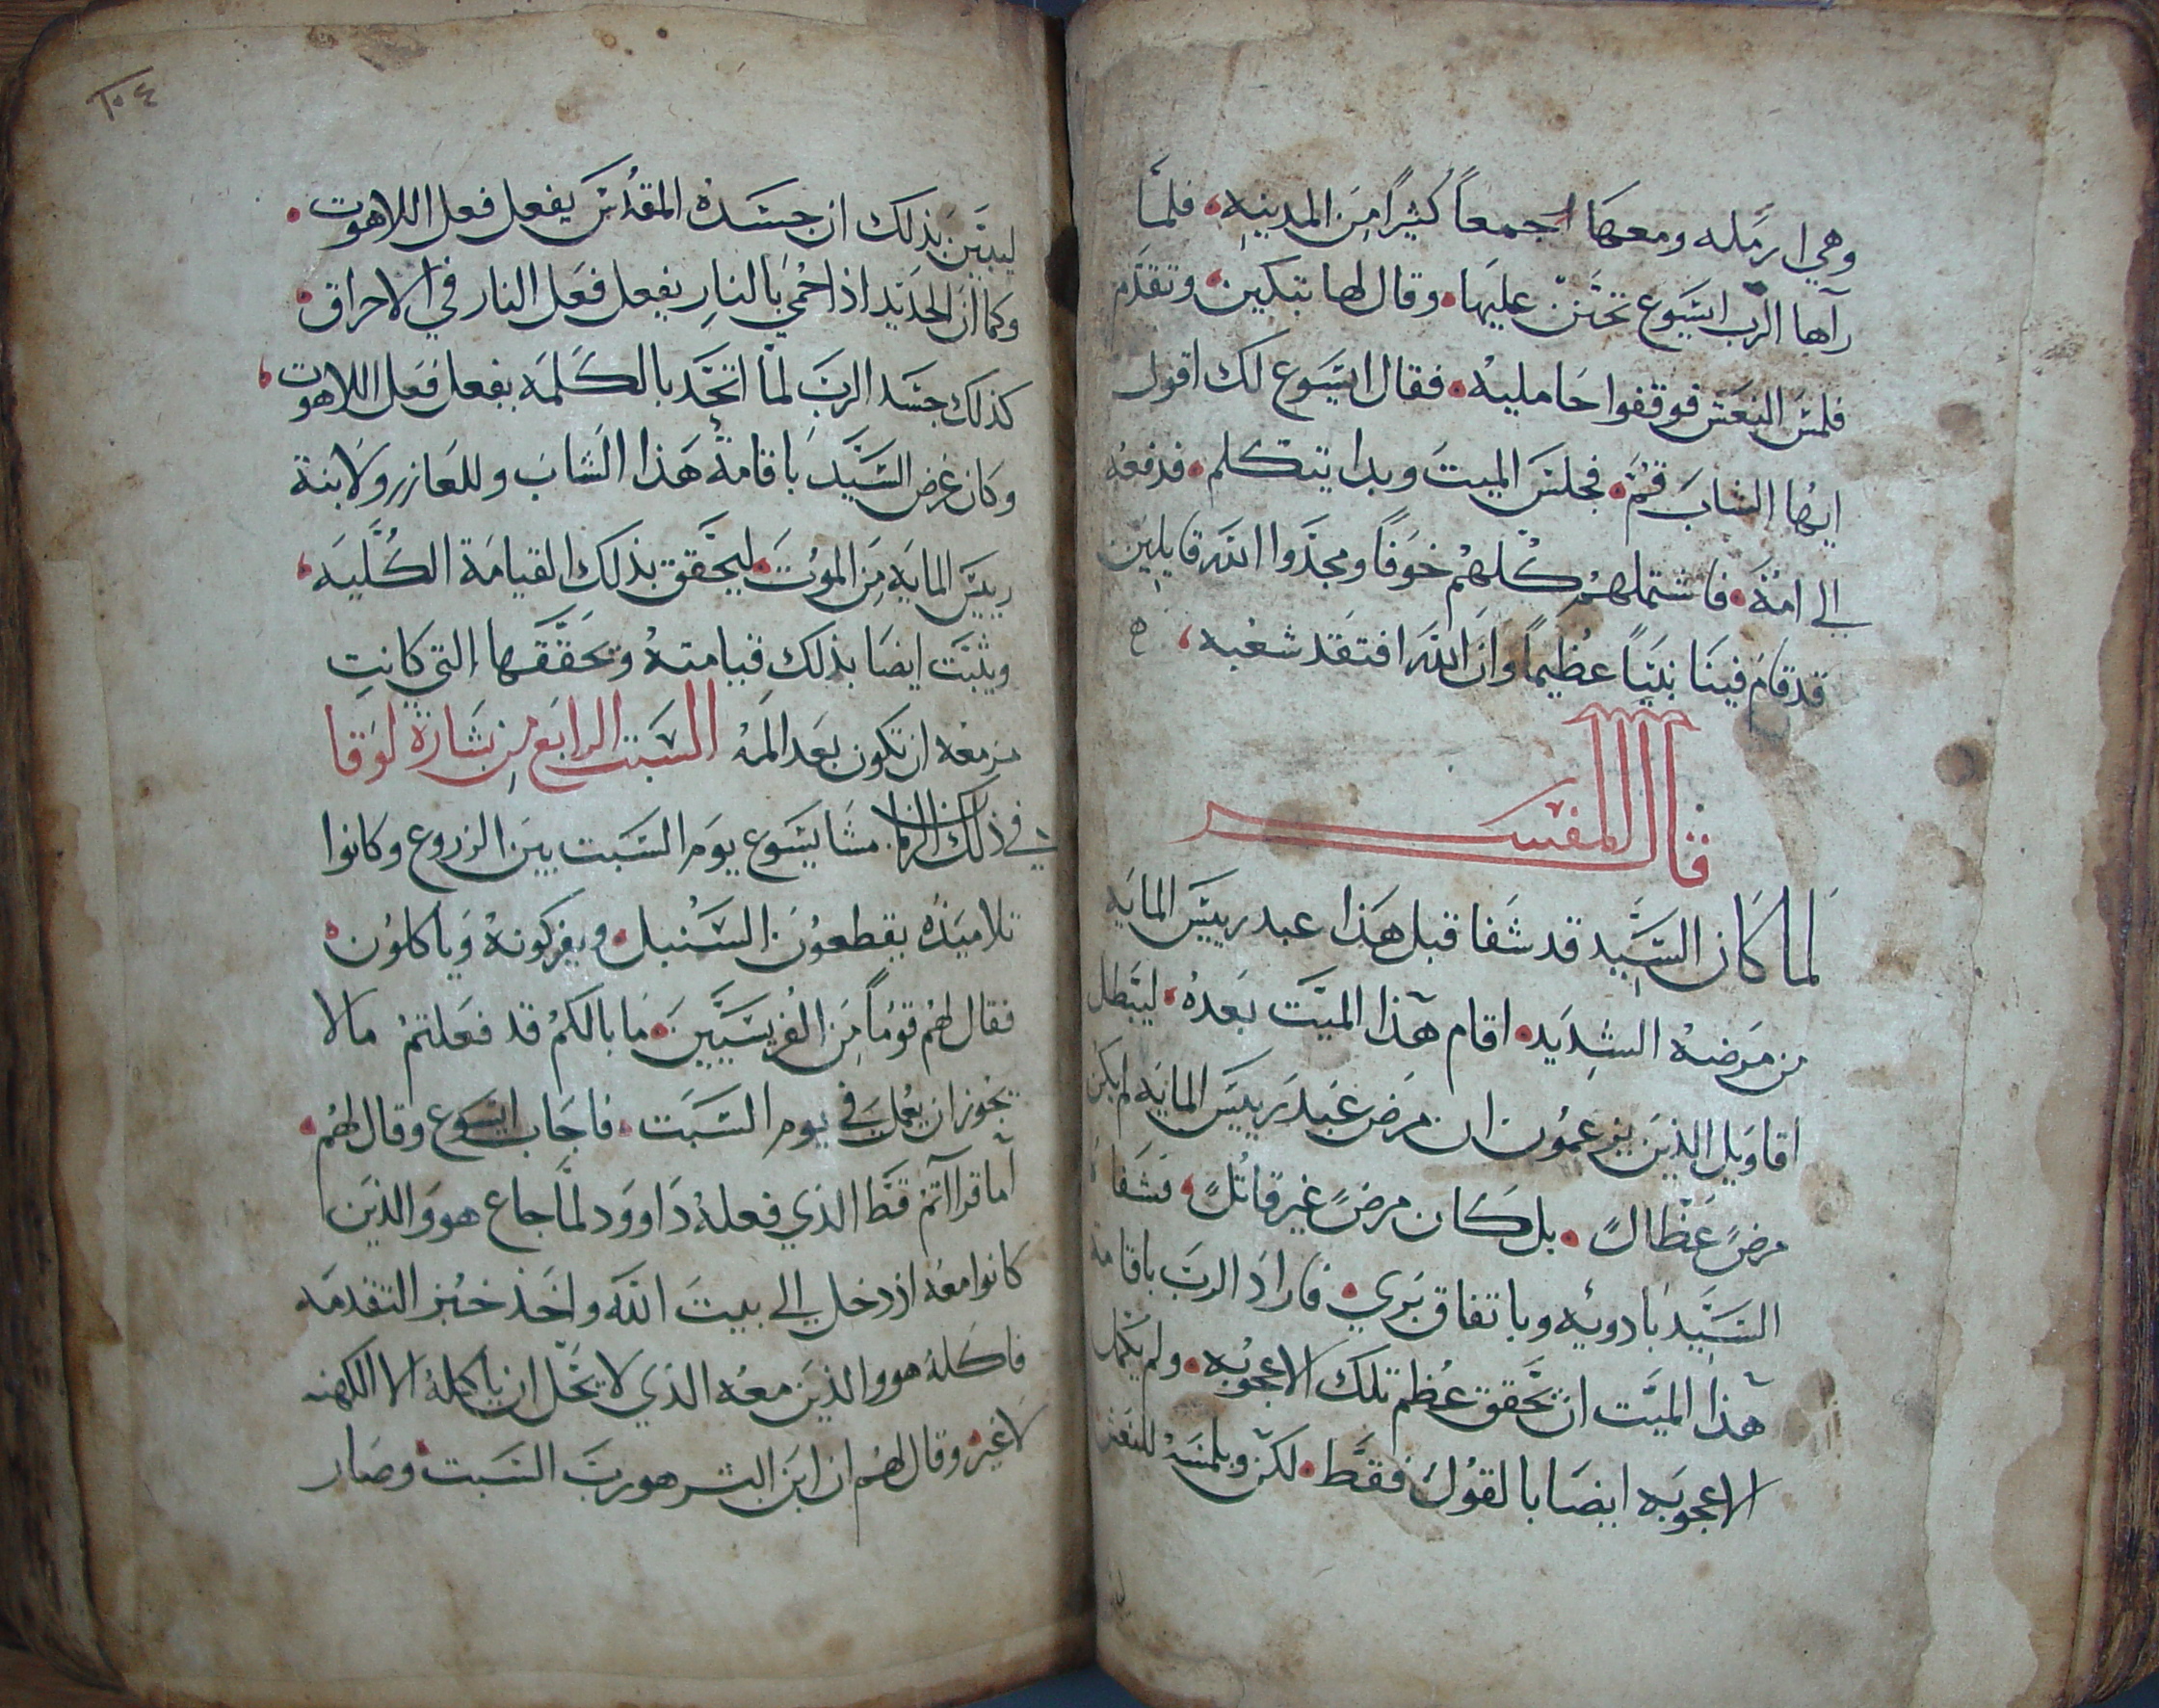 وهي ارمله ومعها جمعاً كثيراً من المدينه• فلمّا
رآها الرب ايسوع تحنن عليها• وقال لها تبكين• وتقدّم
فلمس النعش فوقفوا حامليه• فقال ايسوع لك اقول
ايها الشاب قم• فجلس الميت وبدا يتكلم• فدفعه
الي امه• فاشتملهم كلهم خوفاً ومجدوا الله قايلين
قد قام فينا نبياً عظيماً وان الله افتقد شعبه•
قال المفسر
لما كان السيد قد شفا قبل هذا عبد رييس المايه
من مرضه الشديد• اقام هذا الميت بعده• ليبطل
اقاويل الذين يزعمون ان مرض عبد رييس المايه لم يكن
مرضً عضّالً• بل كان مرضً غير قاتلً• فشفاه
السيد بادويه وباتفاق بري• فاراد الرب باقامة
هذا الميت ان تحقق عظم تلك الاعجوبه• ولم يكمل
الاعجوبه ايضا بالقول فقط• لكن وبلمسه للنعش
٢٠٤
ليبين بذلك ان جسده المقدس يفعل فعل اللاهوت•
وكما ان الحديد اذا حمي بالنار يفعل فعل النار في الاحراق•
كذلك جسد الرب لما اتحد بالكلمه يفعل فعل اللاهوت•
وكان غرض السيد باقامة هذا الشاب وللعازر ولابنة
رييس المايه من الموت• ليحقق بذلك القيامة الكليه•
ويثبت ايضا بذلك قيامته وتحققها التي كانت
مزمعه ان تكون بعد المه السبت الرابع من بشارة لوقا
في ذلك الزمان مشا يسوع يوم السبت بين الزروع وكانوا
تلاميذه يقطعون السنبل• ويفركونه وياكلون•
فقال لهم قوماً من الفريسيين• ما بالكم قد فعلتم ما لا
يجوز ان يعمل في يوم السبت• فاجاب ايسوع وقال لهم•
آما قرااتم قط الذي فعله داوود لما جاع هو والذين
كانوا معه اذ دخل الي بيت الله واخذ خبز التقدمه
فاكله هو والذين معه الذي لا يحل ان ياكله الا الكهنه
لا غير• وقال لهم ان ابن البشر هو رب السبت• وصار